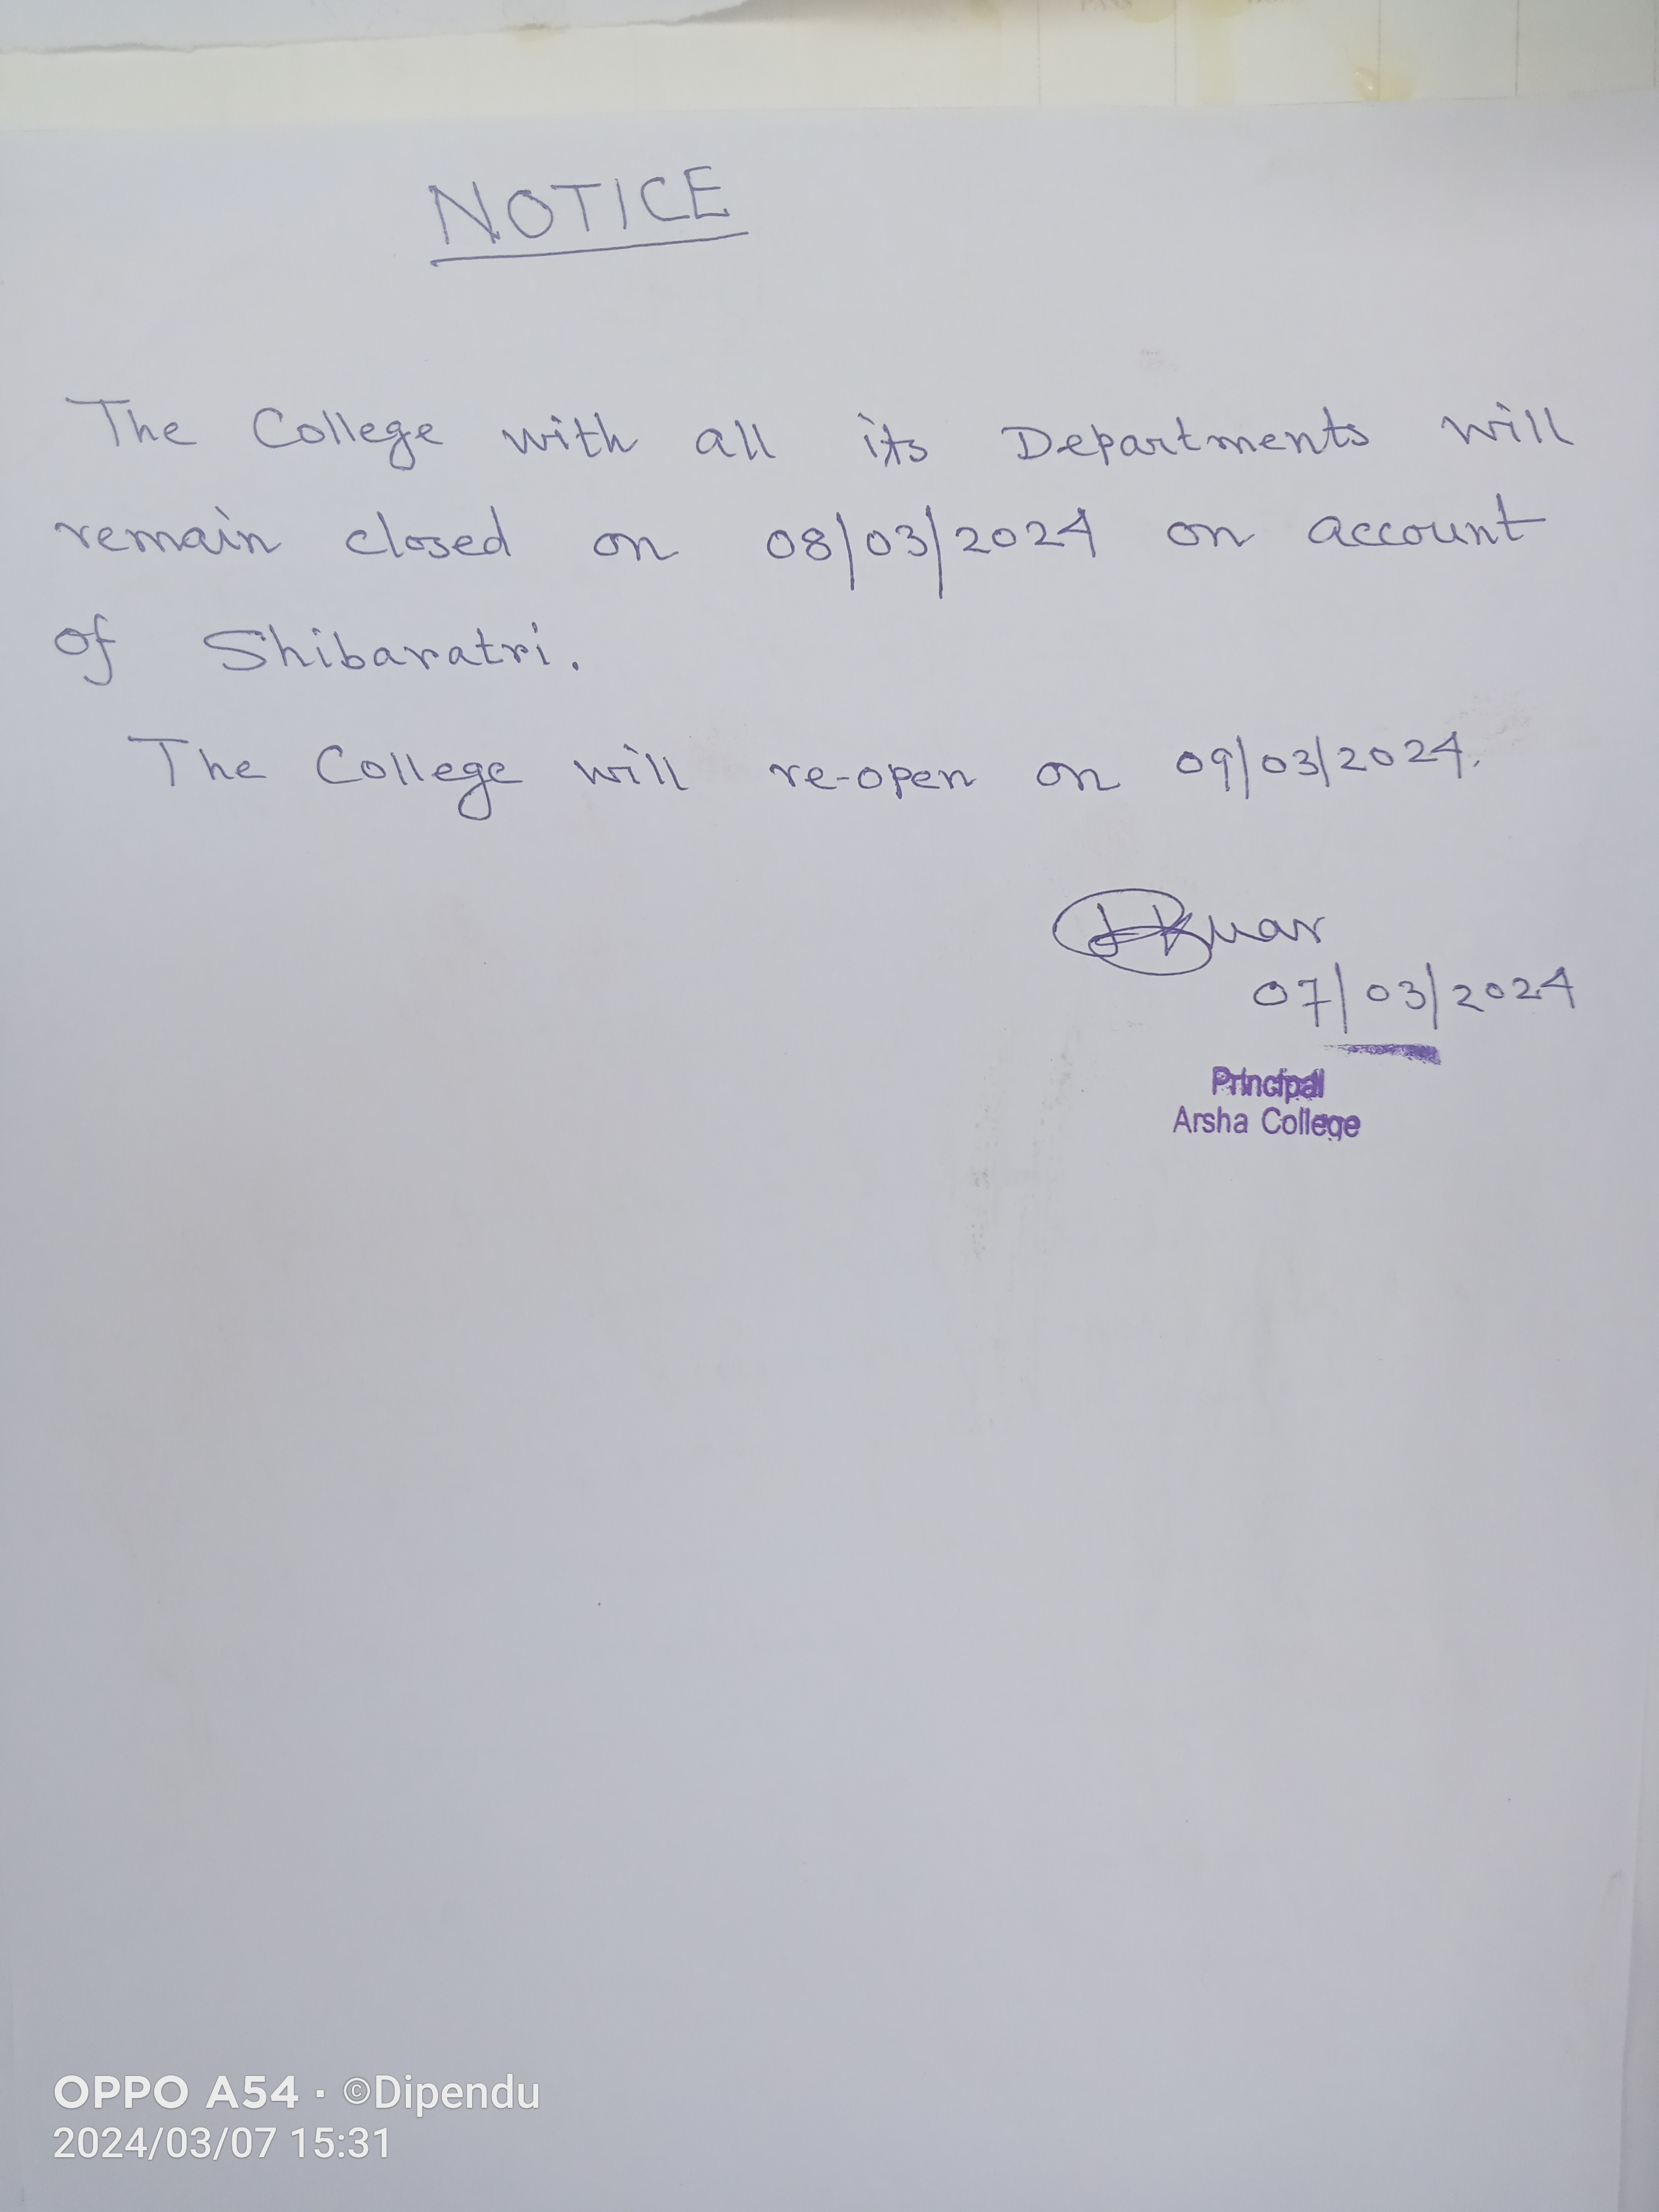 NOTICE
The College with all its Departments will
remain closed on 08/03/2024 on account
of Shibaratri.
The College will re-open on 09/03/2024.
07/03/2024
Principal
Arsha College
OPPO A54 · ©Dipendu
2024/03/07 15:31